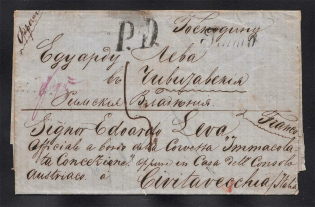 P.D.
Господину
Едуарду Лева
въ Чивитавекія
Римскія Владѣнія
Franco
Signor Edoardo Leva
Officiale a bordo della Corvetta Immacola-
ta Concezione, oppure in Casa del Console
Austriaco à
Civitavecchia Italia